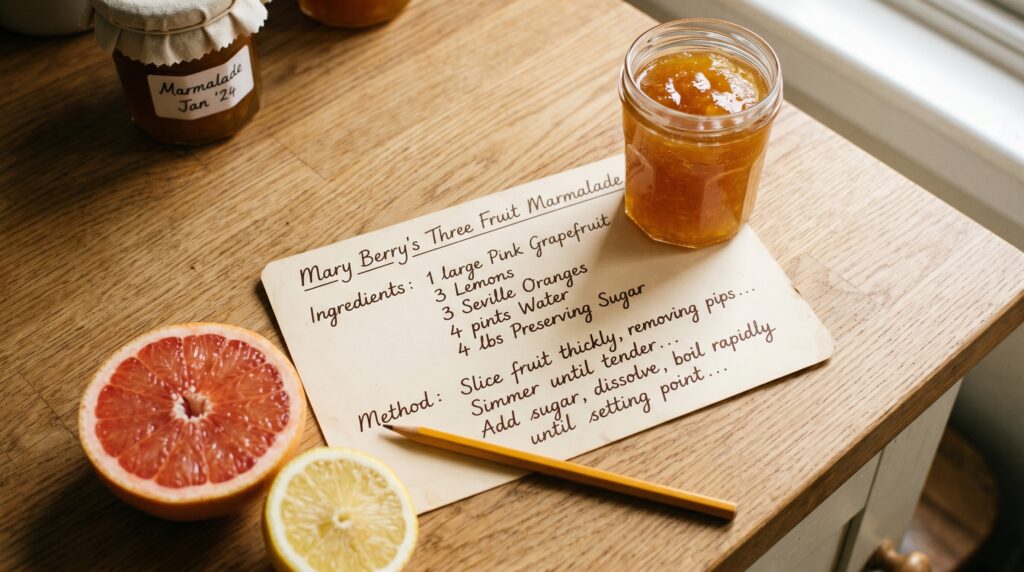 Marmalade
Jan '24
Mary Berry's Three Fruit Marmalade
Ingredients: 1 large Pink Grapefruit
3 Lemons
3 Seville Oranges
4 pints Water
4 lbs Preserving Sugar
Method: Slice fruit thickly, removing pips...
Simmer until tender...
Add sugar, dissolve, boil rapidly
until setting point...